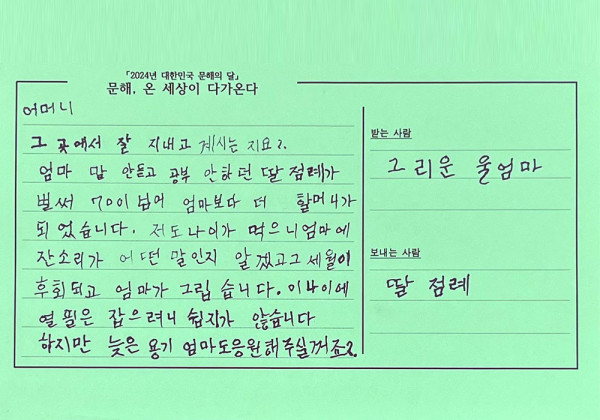 「2024년 대한민국 문해의 달」
문해, 온 세상이 다가온다
어머니
그 곳에서 잘 지내고 계시는 지요?.
엄마 말 안듣고 공부 안하던 딸 점례가
벌써 70이 넘어 엄마보다 더 할머니가
되었습니다. 저도 나이가 먹으니 엄마에
잔소리가 어떤 말인지 알겠고 그 세월이
후회되고 엄마가 그립습니다. 이 나이에
연필은 잡으려니 쉽지가 않습니다
하지만 늦은 용기 엄마도 응원해주실꺼죠?.
받는 사람
그리운 울엄마
보내는 사람
딸 점례